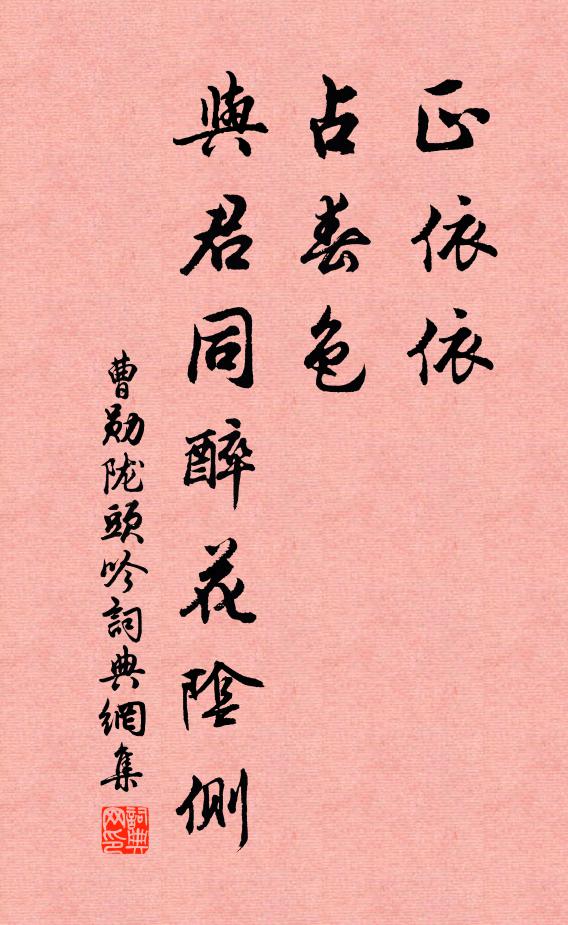 正依依
占春色
與君同醉花陰側
曹勛陇頭吟詞典網集
詞典网印